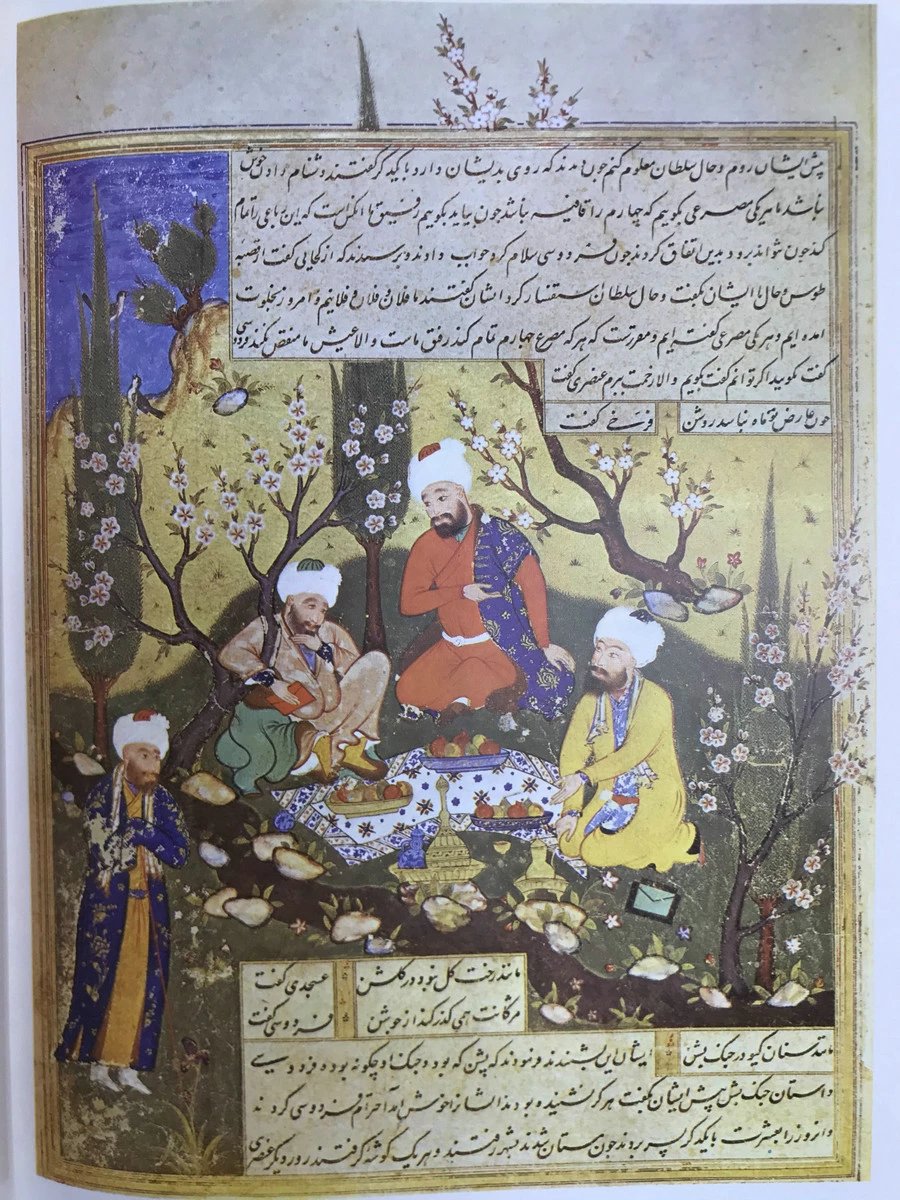 پیش ایشان روم و حال سلطان معلوم کنم چون دیدند که روی بدیشان دارد با یکدیگر گفتند دشنام دادن خوش
نباشد ما هر یکی مصرعی بگوییم که چهارم را قافیه نباشد چون بیاید بگوییم رفیق ما آنکس است که این رباعی را تمام
کند چون نتواند برود بدین اتفاق کردند چون فردوسی سلام کرد جواب دادند و پرسیدند که از کجایی گفت از قصبه
طوس و حال ایشان گفت و حال سلطان استفسار کرد ایشان گفتند ما فلان و فلان و فلانیم و امروز بخلوت
آمده ایم و هر یکی مصرعی گفته ایم و مقررست که هر که مصرع چهارم تمام کند رفیق ماست و الا عیش ما منغص نکند فردوسی
گفت بگویید اگر توانم گفت بگویم والا زحمت ببرم عنصری گفت
چون عارض تو ماه نباشد روشن فرخی گفت
مانند رخت گل نبود در گلشن عسجدی گفت
مژگانت همی گذر کند از جوشن فردوسی گفت
مانند سنان گیو در جنگ پشن ایشان این بشنیدند و نمودند که پشن که بود و جنگ او چگونه بود فردوسی
داستان جنگ پشن پیش ایشان بگفت هرگز نشنیده بودند ایشانرا خوش آمد احترام فردوسی کردند
و آنروز را بعشرت با یکدیگر بسر بردند چون مستان شدند بشهر رفتند و هر یک گوشه گرفتند روز دیگر عنصری